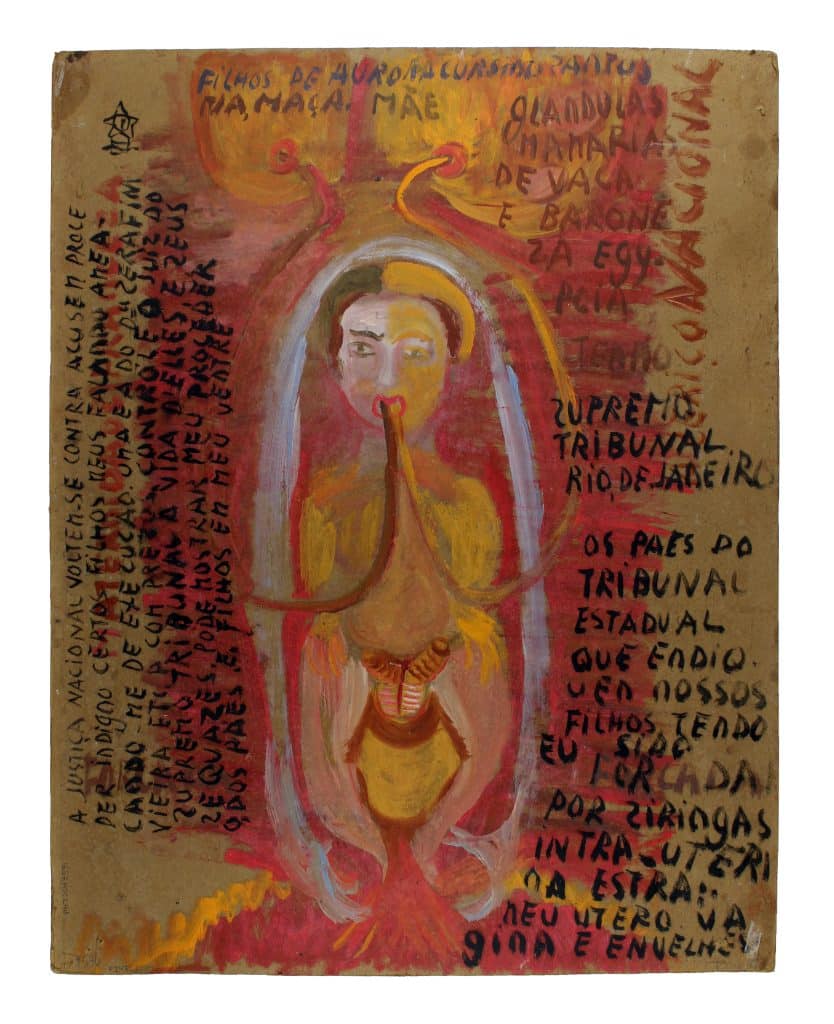 FILHOS DE AURORA CURSINO SANTOS
NA, MAÇA. MÃE
GLANDULAS
MAMARIAS
DE VACA
E BARONE
ZA EGY-
PCIA
TENHO
NACIONAL
SUPREMO
TRIBUNAL
RIO, DE, JANEIRO
OS PAES DO
TRIBUNAL
ESTADUAL
QUE ENDIQ.
UEN NOSSOS
FILHOS, TENDO
EU SIDO
FORCADA
POR SIRINGAS
INTRA-UTERI
NA ESTRA::
MEU UTERO VA
GINA E ENVELHE
A JUSTIÇA NACIONAL VOLTEM-SE CONTRA ACUSEM PROLE-
DER INDIGNO CERTOS FILHOS MEUS FALANDO AMEA-
CANDO-ME DE EXECUCAO UMA E A DO DR ZERAFIM
VIEIRA ETC, A COM PREZA CONTROLE O JUIZ DO
SUPREMO TRIBUNAL A VIDA DELLES E SEUS
SEQUAZES, PODE MOSTRAR MEU PROSEDER
O, DOS PAES E, FILHOS EM MEU VENTRE